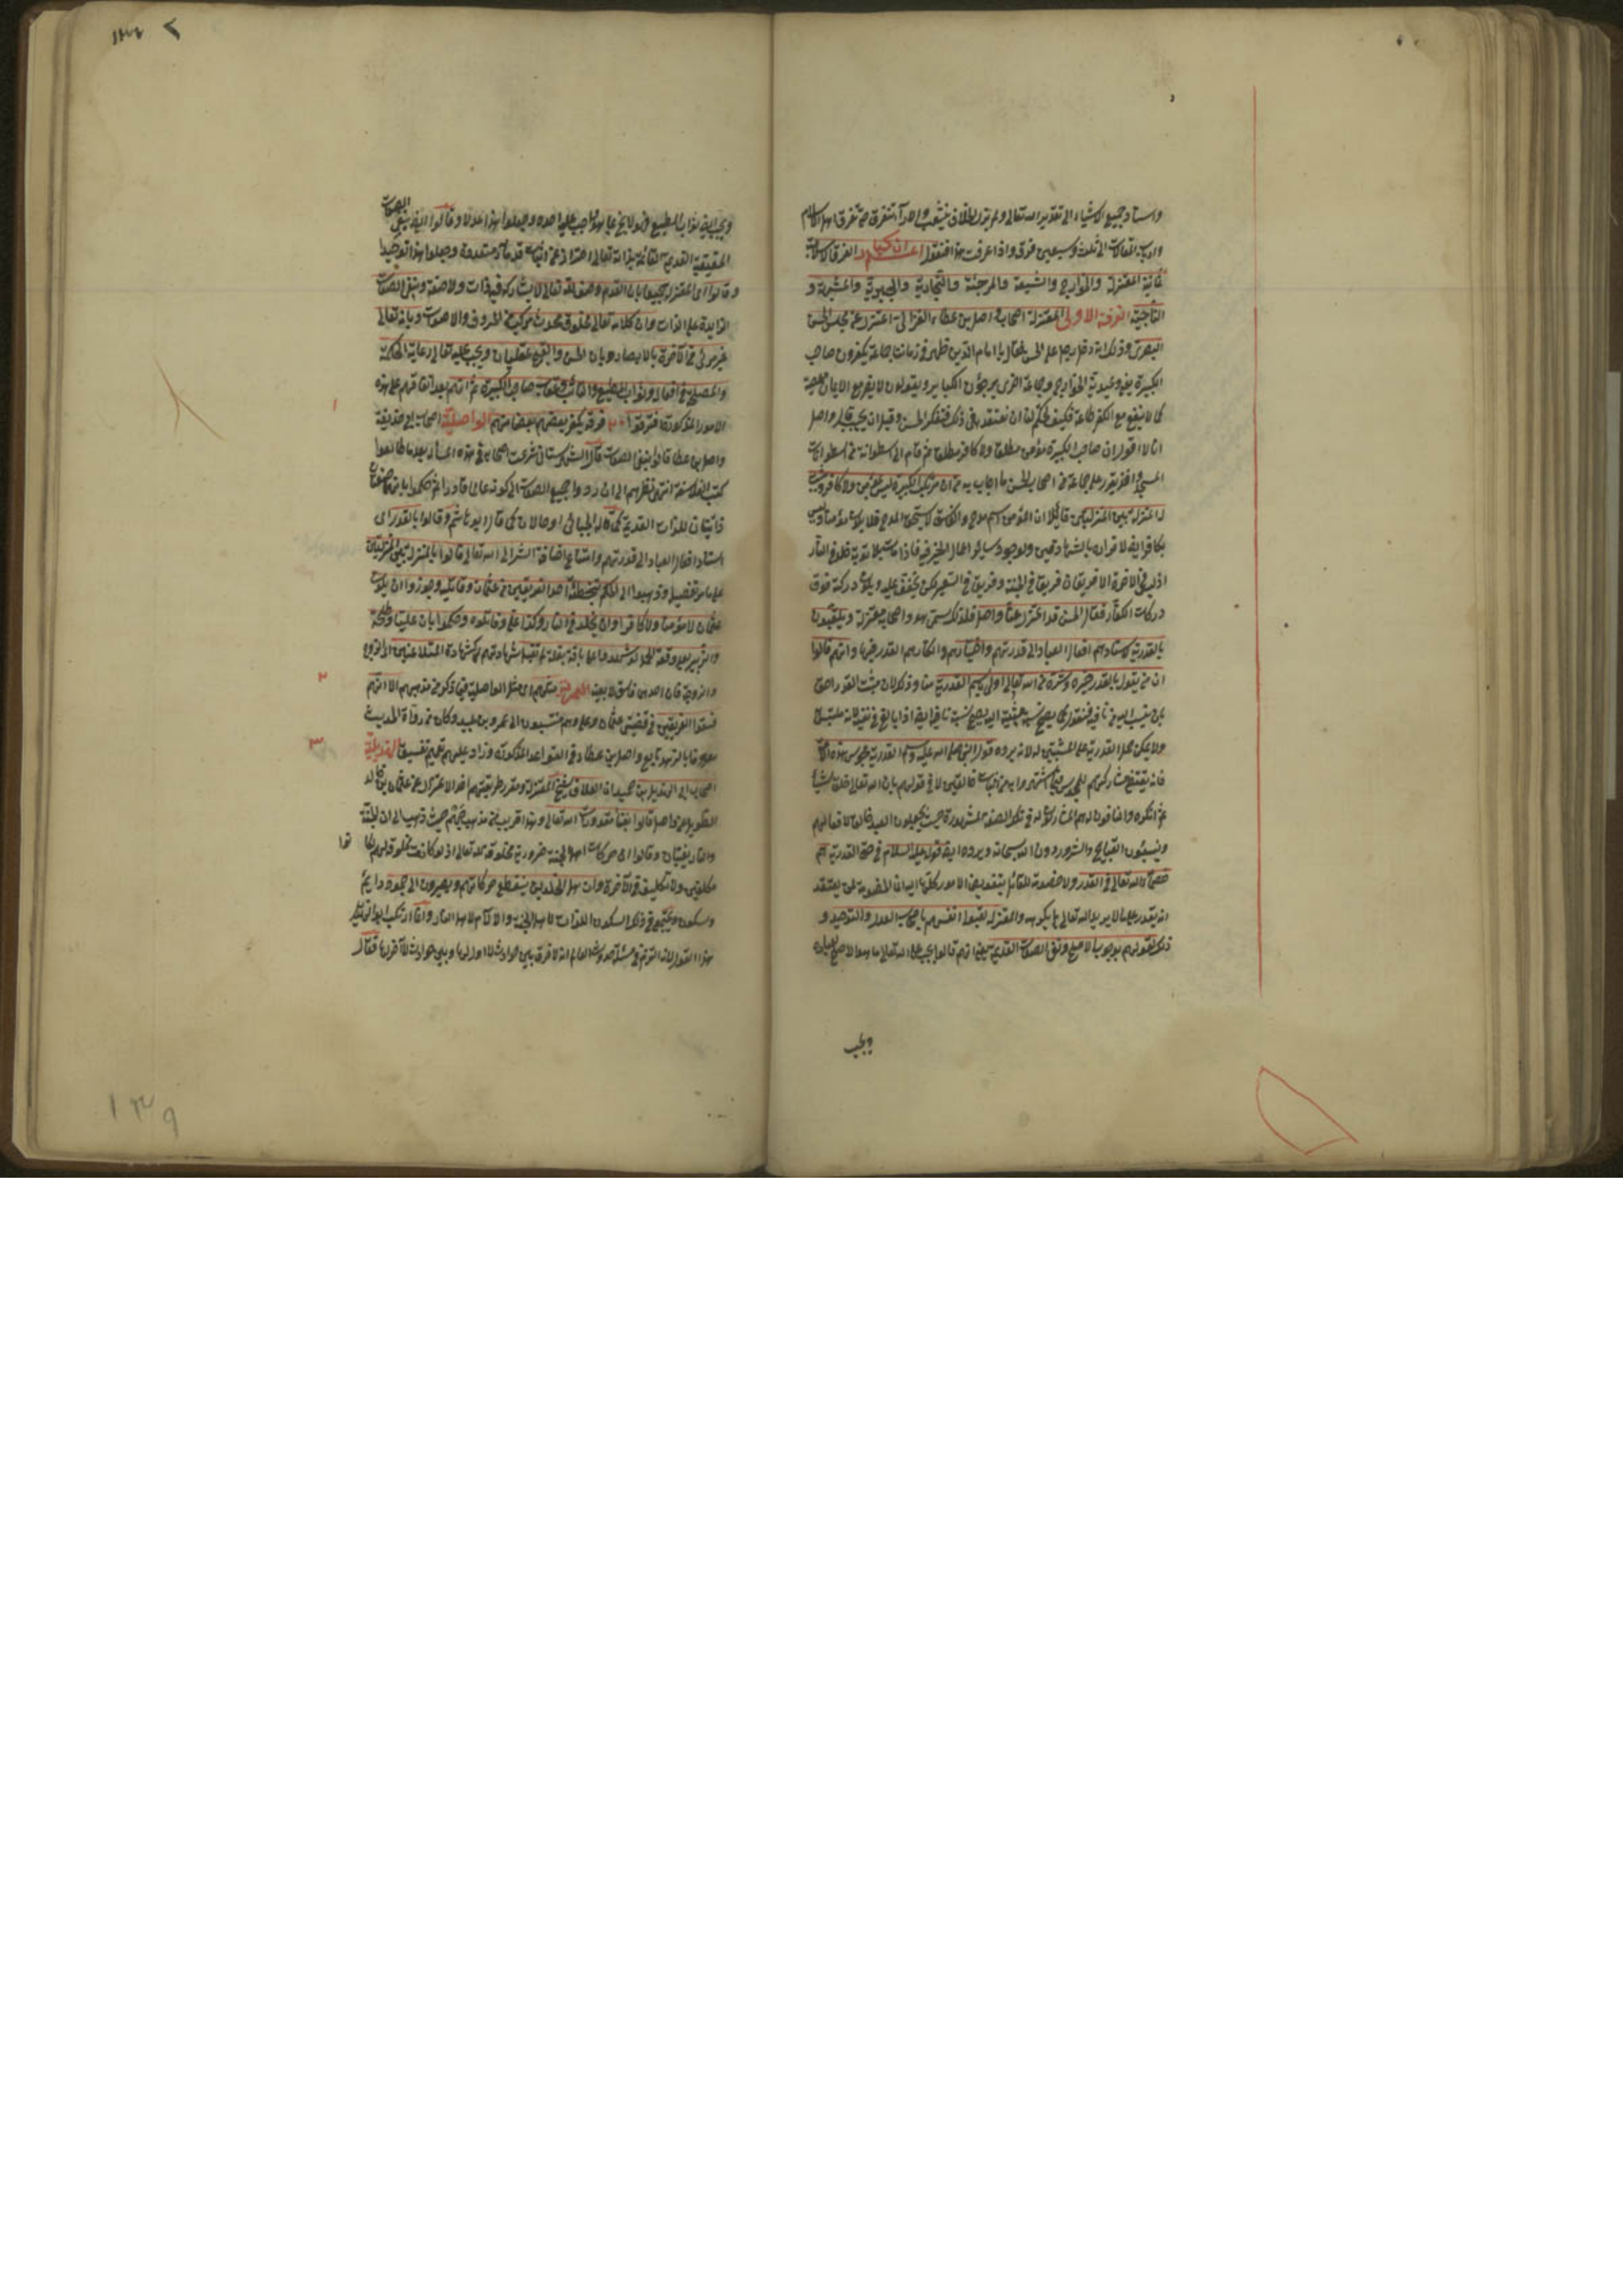 واسناد جميع الاشياء الى تقدير الله تعالى ولم يزل الخلاف يتشعب والآراء تتفرق حتى تفرق اهل الاسلام
وارباب المقالات الى ثلث وسبعين فرقة واذا عرفت هذا فنقول اعلم ان كبار الفرق الاسلامية
ثمانية المعتزلة والخوارج والشيعة والمرجئة والنجارية والجبرية والمشبهة و
الناجية الفرقة الاولى المعتزلة اصحاب واصل بن عطاء الغزالى اعتزل عن مجلس الحسن
البصرى وذلك انه دخل رجل على الحسن فقال يا امام الدين ظهر فى زماننا جماعة يكفرون صاحب
الكبيرة يعنى وعيدية الخوارج وجماعة اخرى يرجؤن الكبائر ويقولون لا يضر مع الايمان معصية
كما لا ينفع مع الكفر طاعة فكيف تحكم لنا ان نعتقد فى ذلك فتفكر الحسن وقبل ان يجيب قال واصل
انا لا اقول ان صاحب الكبيرة مؤمن مطلق ولا كافر مطلق ثم قام الى اسطوانة من اسطوانات
المسجد واخذ يقرر على جماعة من اصحاب الحسن ما اجاب به من ان مرتكب الكبيرة ليس بمؤمن ولا كافر ويثبت
له المنزلة بين المنزلتين قائلا ان المؤمن اسم مدح والفاسق لا يستحق المدح فلا يكون مؤمنا وليس
بكافر ايضا لاقراره بالشهادتين ولوجود سائر اعمال الخير فيه فاذا مات بلا توبة خلد فى النار
اذ ليس فى الآخرة الا فريقان فريق فى الجنة وفريق فى السعير لكن يخفف عليه ويكون دركته فوق
دركات الكفار فقال الحسن قد اعتزل عنا واصل فلذلك سمى هو واصحابه معتزلة ويلقبون
بالقدرية لاسنادهم افعال العباد الى قدرتهم وانكارهم القدر فيها وانهم قالوا
ان من يقول بالقدر خيره وشره من الله تعالى اولى باسم القدرية منا وذلك لان مثبت القدر احق
بان ينسب اليه من نافيه فنقول كما يصح نسبة مثبته اليه يصح نسبة نافيه ايضا اذا بالغ فى نفيه لانه ملتبس
ولا يمكن حمل القدرية على المثبتين له لانه يرده قول النبى صلى الله عليه وسلم القدرية مجوس هذه الامة
فانه يقتضى مشاركتهم للمجوس فيما اشتهروا به من اثبات خالقين لا فى قولهم بان الله تعالى خلق شيئا
ثم انكره والنافون له هم المشاركون له فى تلك الصفة المشهورة حيث يجعلون العبد خالقا لافعالهم
وينسبون القبايح والشرور دون الله سبحانه ويرده ايضا قوله عليه السلام فى حق القدرية هم
خصماء الله تعالى فى القدر ولا خصومة للقائل بتفويض الامور كلها اليه انما الخصومة لمن يعتقد
انه يقدر على ما لا يريد الله تعالى بل يكرهه والمعتزلة لقبوا انفسهم باصحاب العدل والتوحيد و
ذلك لقولهم بوجوب الاصلح ونفى الصفات القديمة يعنى انهم قالوا يجب على الله تعالى ما هو الاصلح لعباده
ويجب
١٣٤
ويجب ايضا ثواب المطيع فهو لا يخل بما هو واجب عليه اصلا وجعلوا هذا عدلا وقالوا ايضا بنفى الصفات
الحقيقية القديمة القائمة بذاته تعالى احترازا عن اثبات قدماء متعددة وجعلوا هذا توحيدا
وقالوا اى المعتزلة جميعا بان القدم وصف الله تعالى لا يشاركه فيه ذات ولا صفة وبنفى الصفات
الزايدة على الذات وبان كلامه تعالى مخلوق محدث مركب من الحروف والاصوات وبانه تعالى
غير مرئى فى الآخرة بالابصار وبان الحسن والقبح عقليان ويجب عليه تعالى رعاية الحكمة
والمصلحة فى افعاله وثواب المطيع والتائب وعقاب صاحب الكبيرة ثم انهم بعد اتفاقهم على هذه
الامور المذكورة افترقوا ٢٠ فرقة يكفر بعضهم بعضا منهم الواصلية اصحاب ابى حذيفة
١
واصل بن عطا قالوا بنفى الصفات قال الشهرستانى شرعت اصحابه فى هذه المسألة بعد ما طالعوا
كتب الفلاسفة وانتهى نظرهم الى ان ردوا جميع الصفات الى كونه عالما قادرا ثم حكموا بانهما صفتان
ذاتيتان للذات القديمة كما قاله الجبائى او حالان كما قال ابو هاشم وقالوا بالقدر اى
اسناد افعال العباد الى قدرتهم وامتناع اضافة الشر الى الله تعالى قالوا بالمنزلة بين المنزلتين
على ما مر تفصيله وذهبوا الى الحكم بتخطئة احد الفريقين من عثمان وقاتليه وجوزوا ان يكون
عثمان لا مؤمنا ولا كافرا وان يخلد فى النار وكذا على وقاتلوه وحكموا بان عليا وطلحة
والزبير بعد وقعة الجمل لو شهدوا على باقة بقلة لم تقبل شهادتهم كشهادة المتلاعنين اى الزوج
والزوجة فان احدهما فاسق لا بعينه العمرية مثلهم اى مثل الواصلية فيما ذكر من مذهبهم الا انهم
٢
فسقوا الفريقين فى قضيتى عثمان وعلى وهم منتسبون الى عمرو بن عبيد وكان من رواة الحديث
معروفا بالزهد تابع واصل بن عطا فى القواعد المذكورة وزاد عليهم تعميم التفسيق الهذيلية
٣
اصحاب ابى الهذيل بن حمدان العلاف شيخ المعتزلة ومقرر طريقتهم اخذ الاعتزال عن عثمان بن خالد
الطويل عن واصل قالوا بفناء مقدورات الله تعالى وهذا قريب من مذهب جهم حيث ذهب الى ان الجنة
والنار يفنيان وقالوا ان حركات اهل الجنة ضرورية مخلوقة لله تعالى اذ لو كانت مخلوقة لهم لكانوا
مكلفين ولا تكليف فى الآخرة وان اهل الخلدين ينقطع حركاتهم ويصيرون الى خمود دايم
وسكون ويجتمع فى ذلك السكون اللذات لاهل الجنة والآلام لاهل النار وانما ارتكب ابو الهذيل
هذا القول لانه التزم فى مسئلة حدوث العالم انه لا فرق بين حوادث لا اول لها وبين حوادث لا آخر لها فقال
١٣٩